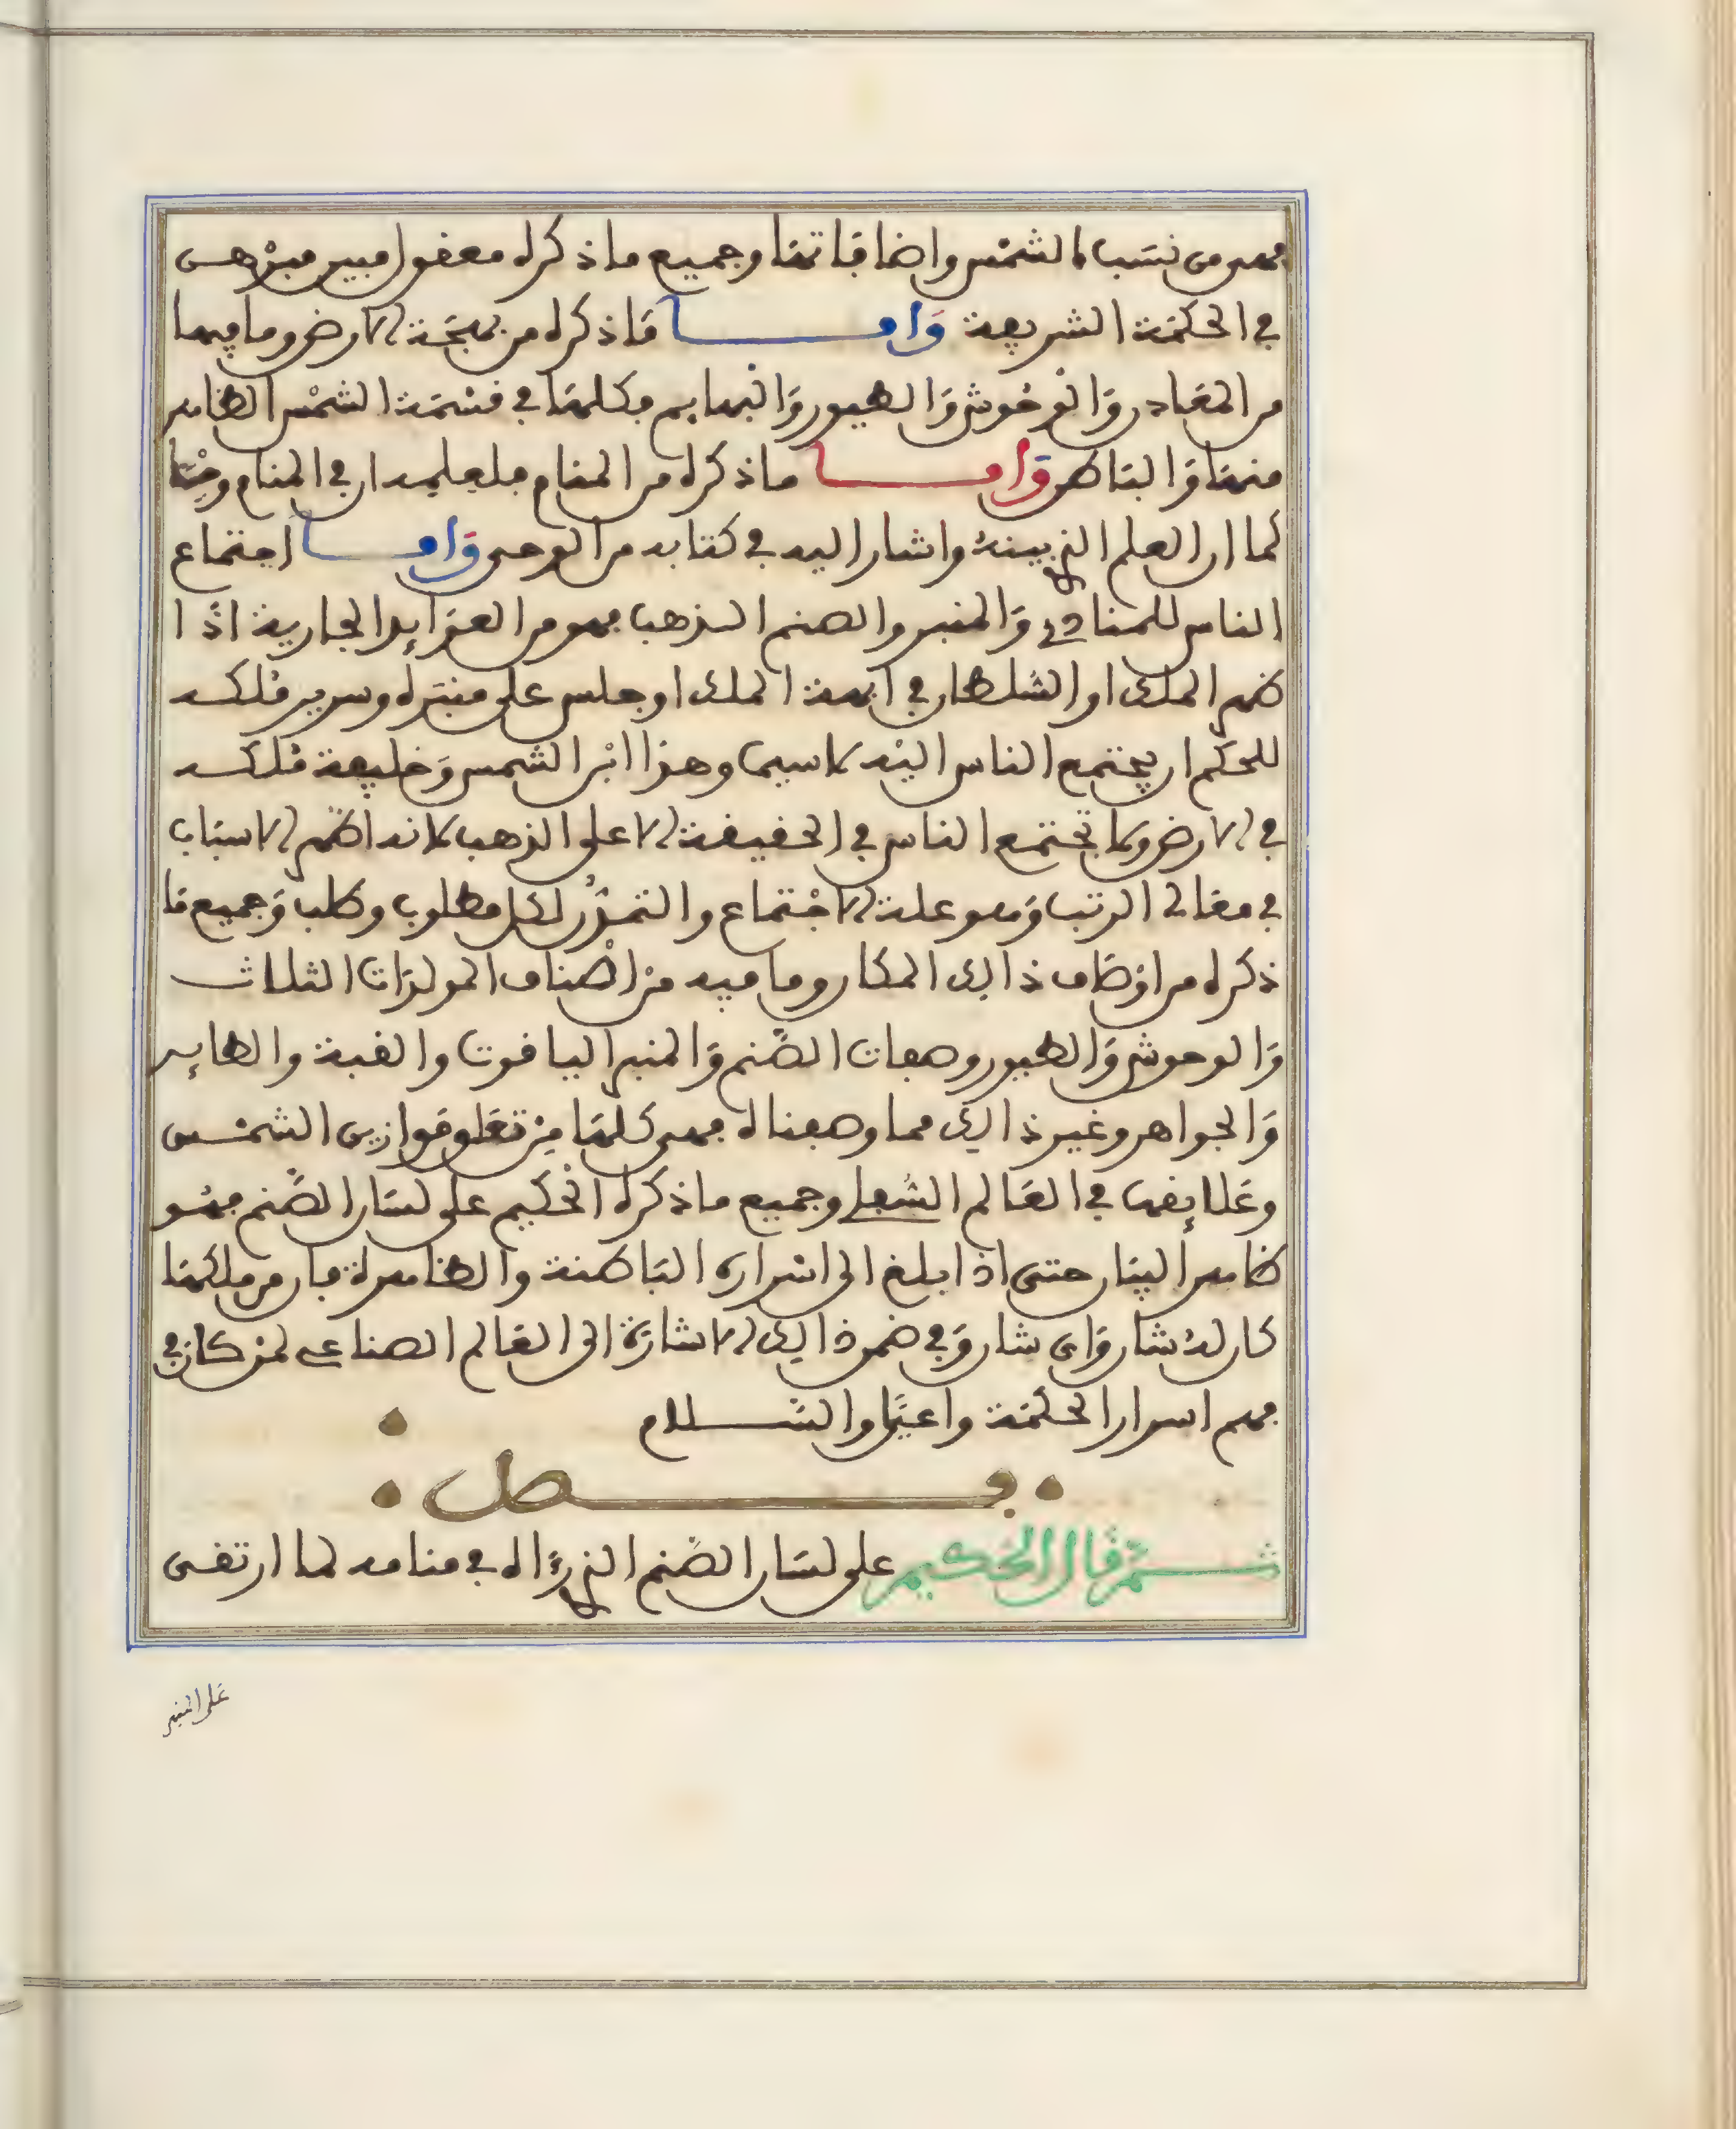 فهى من نسب الشمس واضافاتها وجميع ما ذكره معقول مبين مبرهن
في الحكمة الشريفة وَامـــا مَا ذكره من بهجَة الارض وما فيها
من المعَادن وَالوحُوش وَالطيور وَالبهايم فكلهَا في قسْمَة الشمْس الظاهر
منهَا وَالبَاطن وَامـــا ما ذكره من المنام فلعلمه ان في المنام وحْيًا
كما ان العلم الذي بينهُ واشار اليه في كتابه من الوحى وَامـــا اجتماع
الناس للمنادى وَالمنبر والصنم الذهب فهو من العوَايد الجارية اذَا
ظهر الملك او السلطان في ابهة الملك او جلس على منبَره وسرير مُلكه
للحكم ان يجْتمع الناس اليْه لا سيما وهذا ابْن الشمس وَخليفة مُلكه
في الارض وما تجْتمع الناس في الحقيقة الا على الذهب لانه اظهر الاسبَاب
في معَالى الرتب وَهو علة الاجْتماع والتمَوُّل لكل مطلوب وطلب وَجميع مَا
ذكره من اوْصَاف ذالك المكان وما فيه منْ اصْناف المولدَات الثلاث
وَالوحوش وَالطيور وصفات الصَّنم وَالمنبر الياقوت والقبة والطاير
وَالجواهر وغير ذالك مما وصفناه فهى كلهَا مِنْ تعَلق قوانين الشمْس
وعَلايقها في العَالم السُّفلي وجميع ما ذكره الحَكيم على لسَان الصَّنم فهْو
ظاهر البيَان حتى اذا بلغ الى اسْراره البَاطنة والظاهرة فان من فلكهَا
كان لهُ شان وَاى شان وَفي ضمن ذالك الاشارَة الى العَالم الصناعي لمن كان في
فهم اسرار الحكمَة واعيًا والسَّـــلام
فــصل
ثـــم قال الحَكيم على لسَان الصَّنم الذي رَءَاه في منامه لما ارتقى
عَلى المنبر